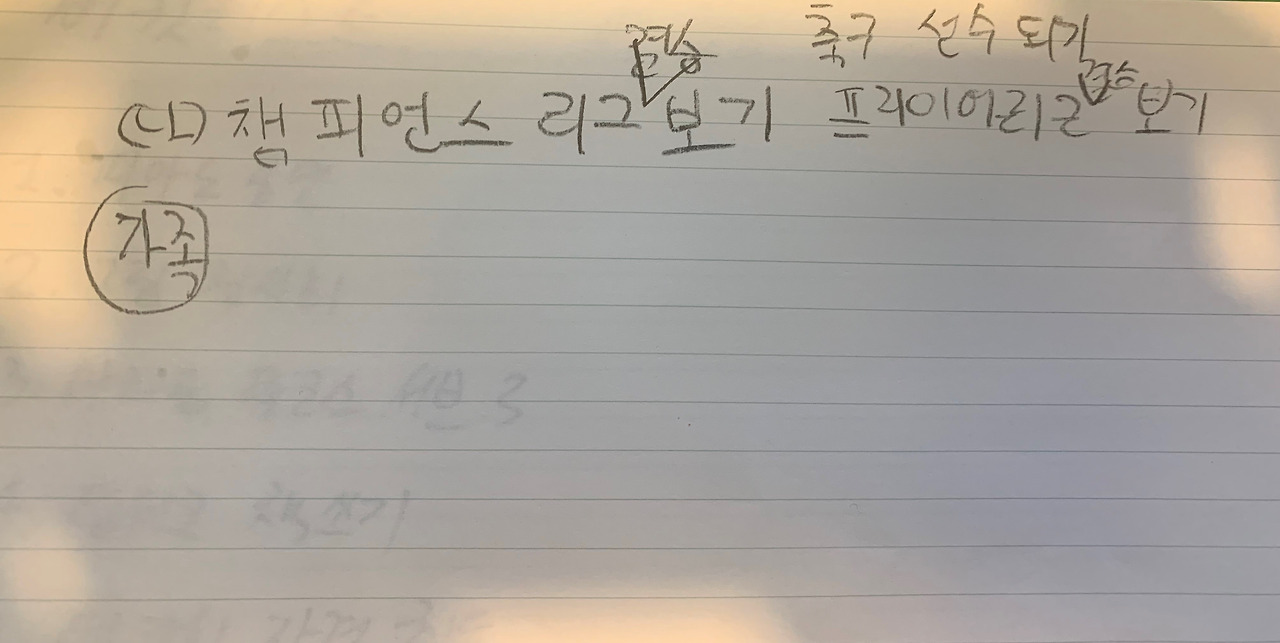 결승 축구 선수 되기
(ㄷL) 챔피언스 리그 보기 프리이어리그 결승 보기
가족